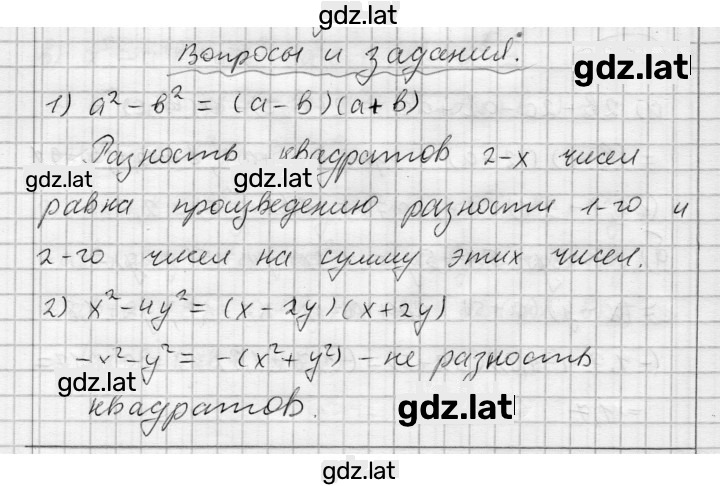 gdz.lat
Вопросы и задания.
gdz.lat
1) a² - b² = (a - b)(a + b)
Разность квадратов 2-х чисел
gdz.lat gdz.lat
равна произведению разности 1-го и
2-го чисел на сумму этих чисел.
2) x² - 4y² = (x - 2y)(x + 2y)
-x² - y² = -(x² + y²) - не разность
gdz.lat
квадратов.
gdz.lat
gdz.lat